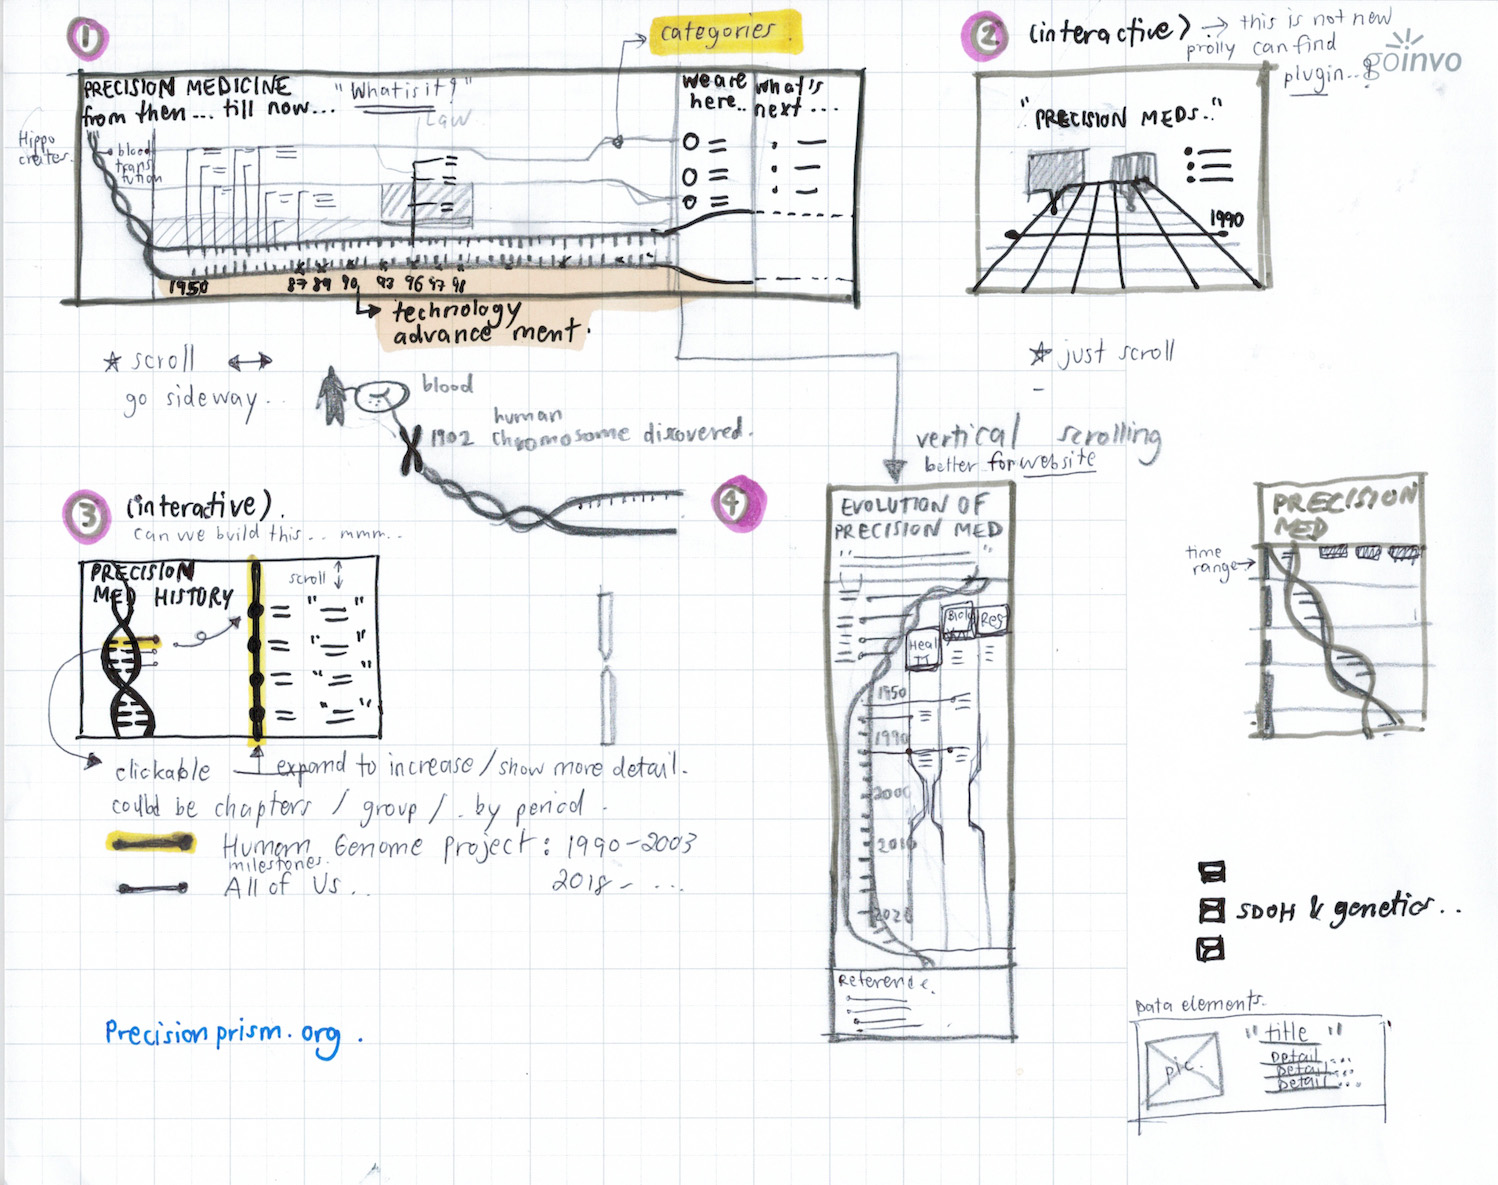 1
categories
PRECISION MEDICINE
from then... till now...
"What is it?"
Law
we are
here..
what's
next...
Hippo
crates
blood
trans
fution
1950
87 89 90 93 96 97 98
technology
advance ment.
scroll
go sideway..
2
(interactive) → this is not new
prolly can find
plugin...
goinvo
"PRECISION MEDS.."
1990
just scroll
blood
1902 human
chromosome discovered.
vertical scrolling
better for website
3
(interactive).
can we build this.. mmm..
PRECISION
MED HISTORY
scroll
clickable
expand to increase / show more detail.
could be chapters / group / . by period.
Human Genome project: 1990-2003
milestones.
All of Us... 2018 - ...
4
EVOLUTION OF
PRECISION MED
Heal
IT
Reg
1950
1990
2000
2010
2020
Reference.
PRECISION
MED
time
range
SDOH & genetics...
Data elements.
pic.
"title"
Detail...
Detail...
Detail...
Precisionprism.org.